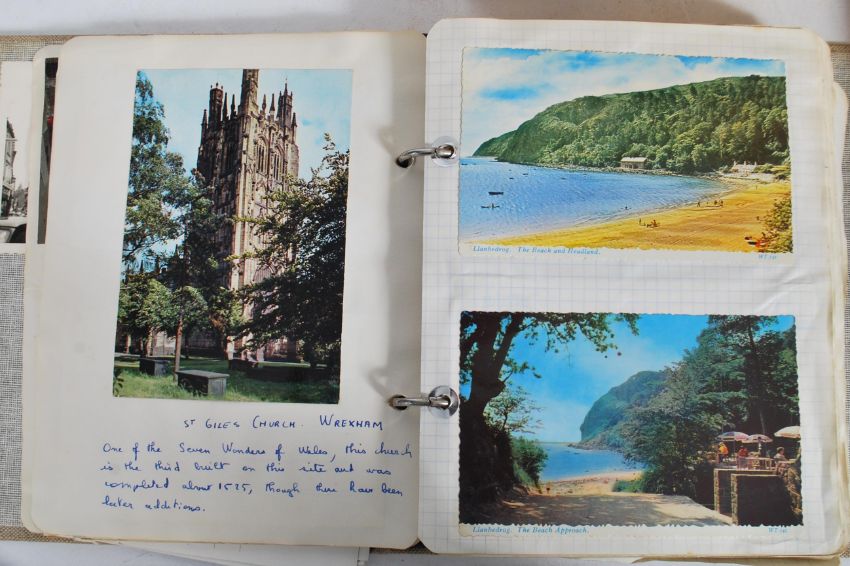 ST GILES CHURCH. WREXHAM
One of the Seven Wonders of Wales, this church
is the third built on this site and was
completed about 1525, though there have been
later additions.
Llanbedrog. The Beach and Headland.
Llanbedrog. The Beach Approach.